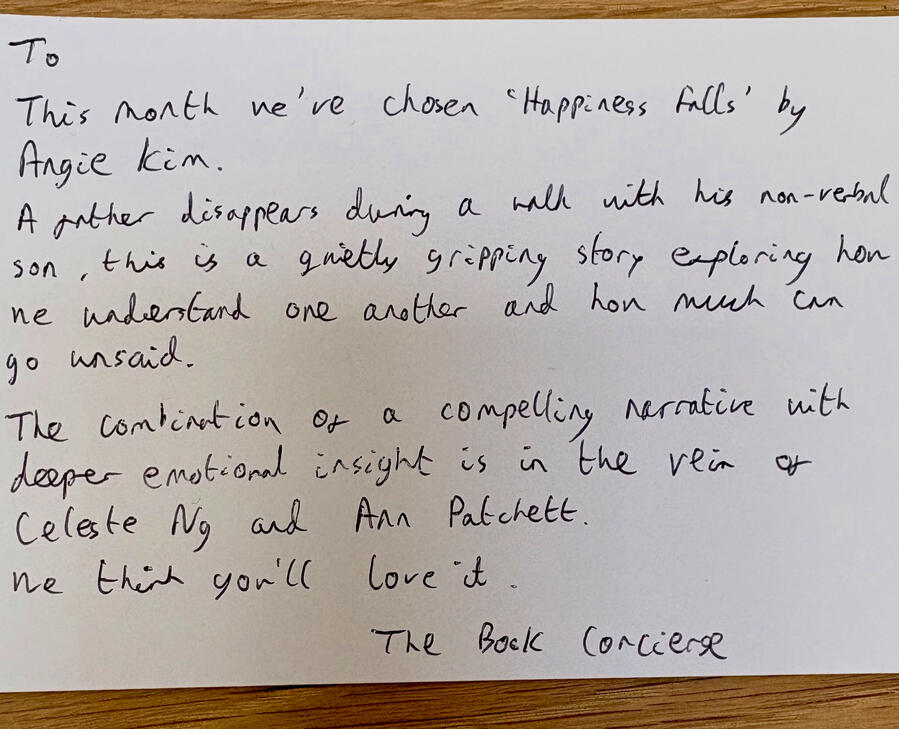 To
This month we've chosen 'Happiness Falls' by
Angie Kim.
A father disappears during a walk with his non-verbal
son, this is a quietly gripping story exploring how
we understand one another and how much can
go unsaid.
The combination of a compelling narrative with
deeper emotional insight is in the vein of
Celeste Ng and Ann Patchett.
We think you'll love it.
The Book Concierge